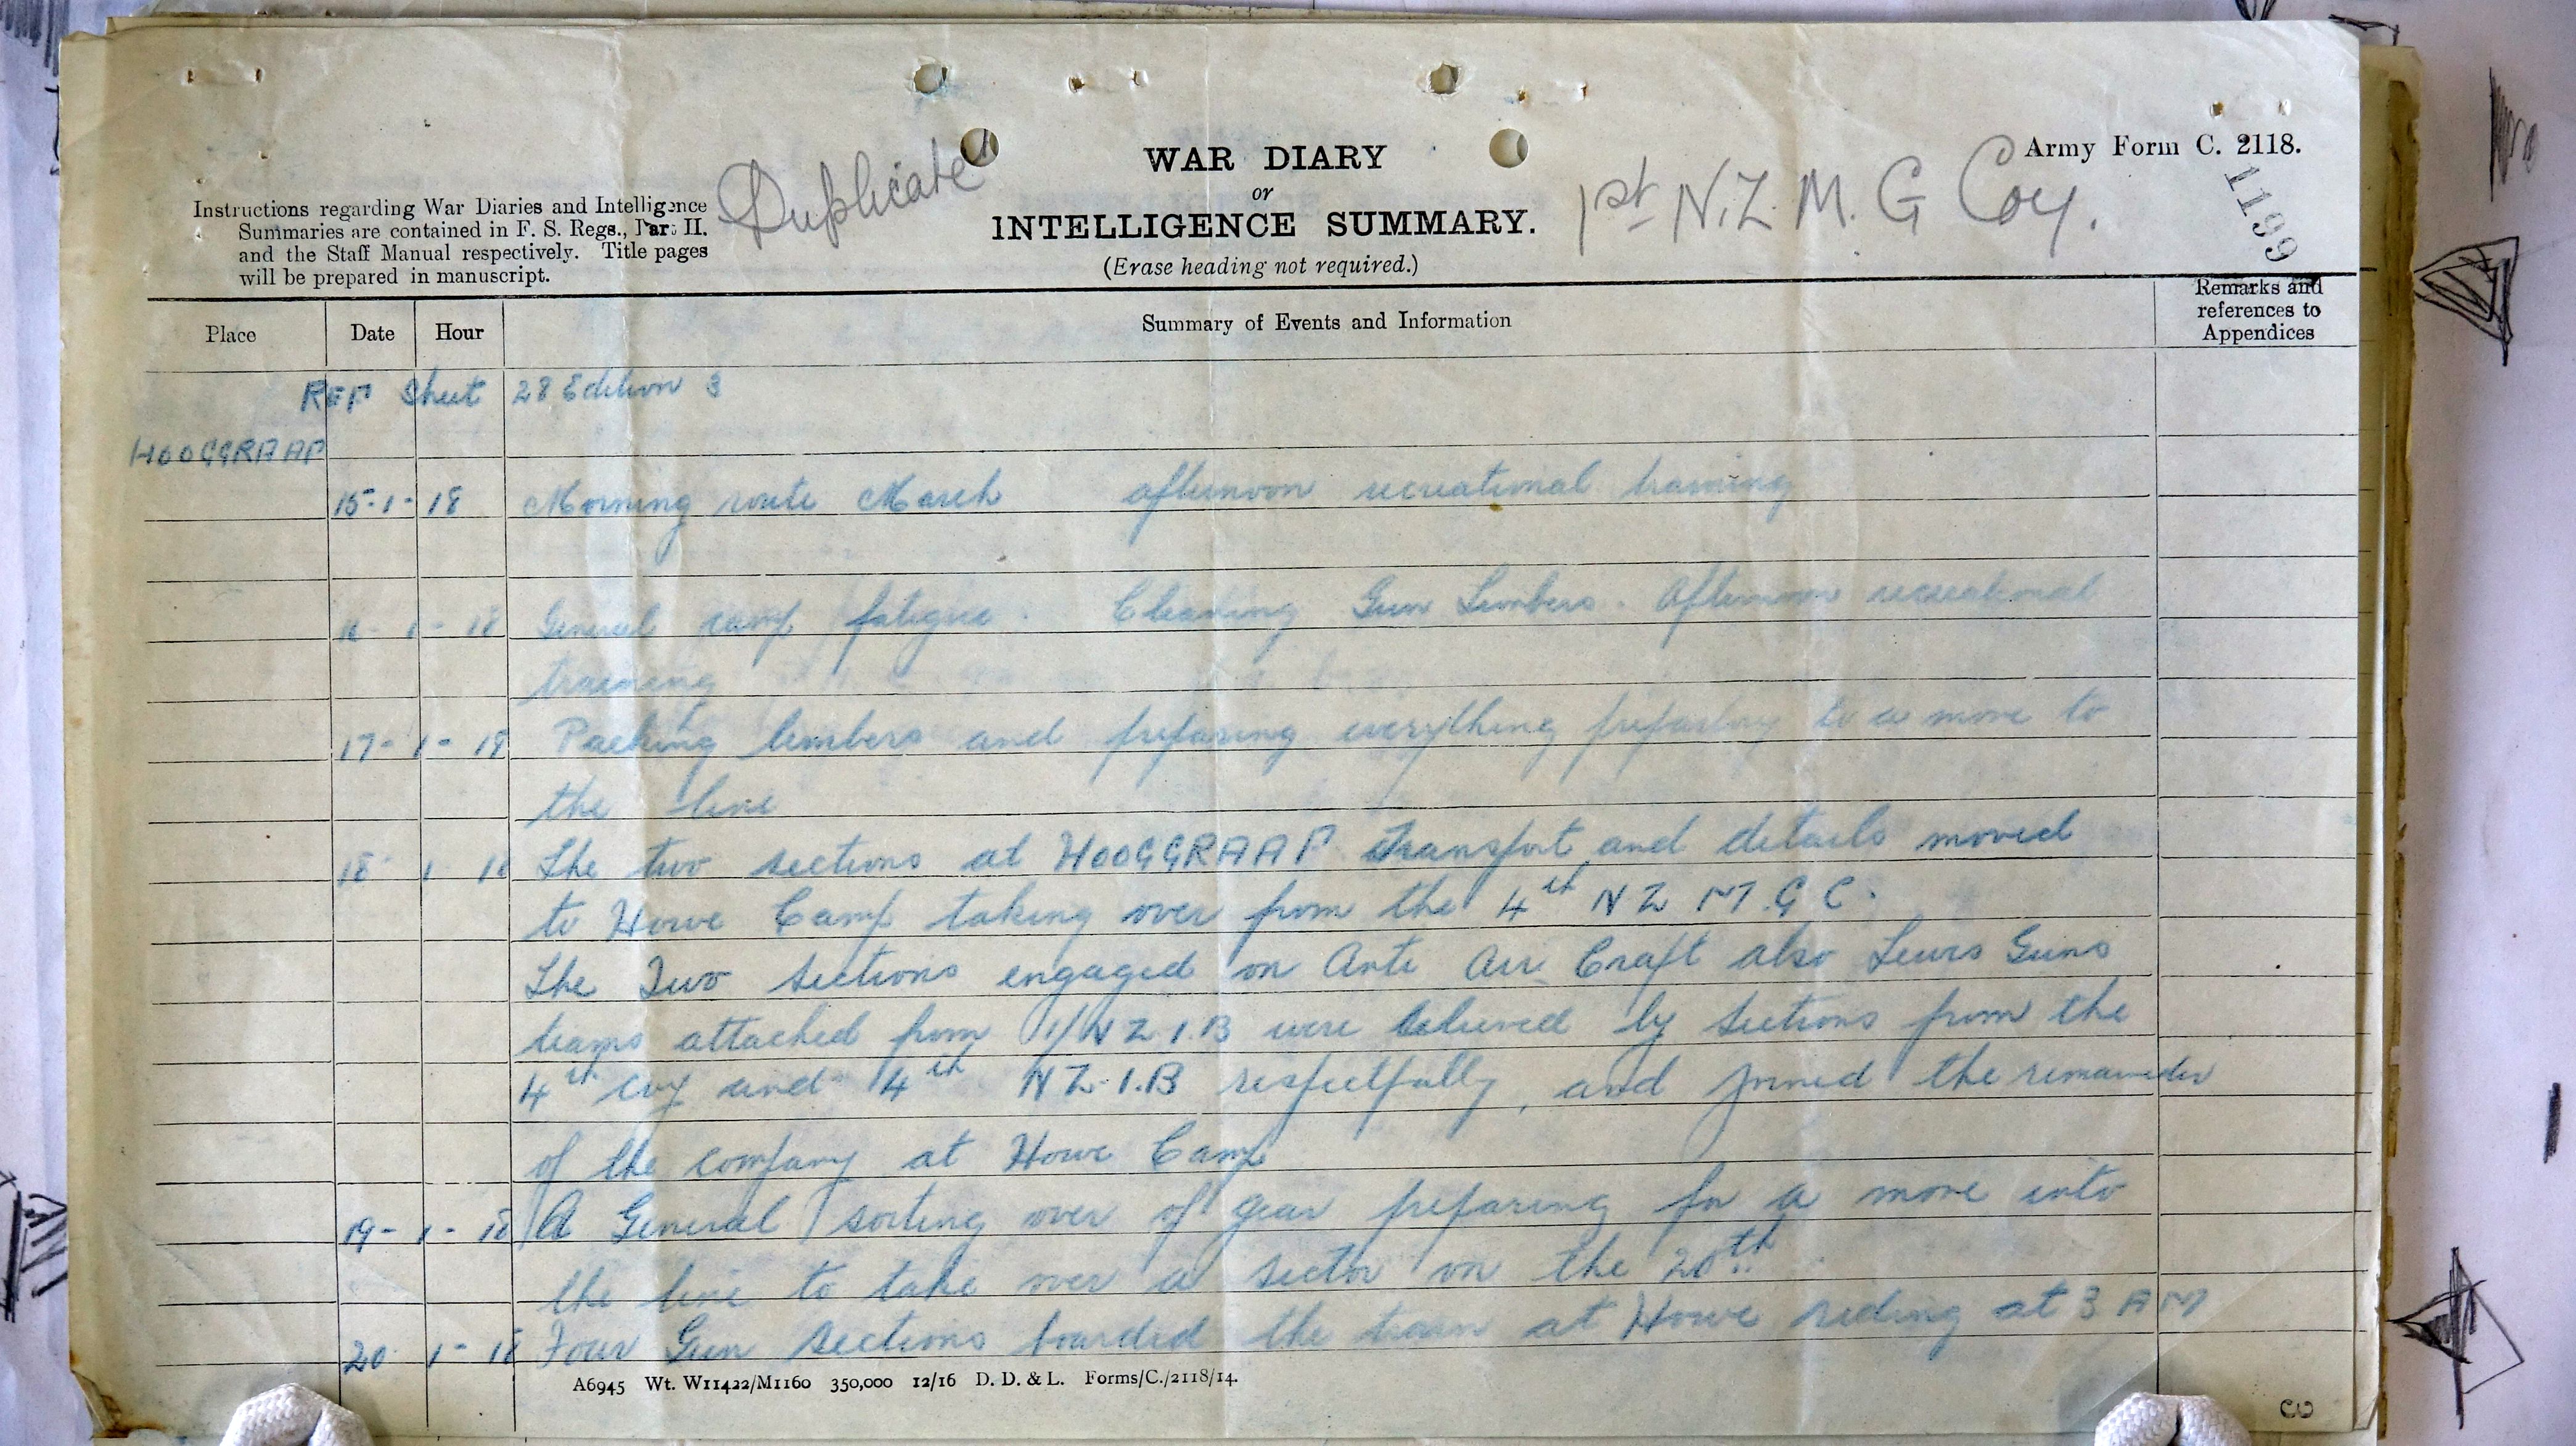 Army Form C. 2118.
WAR DIARY
or
INTELLIGENCE SUMMARY.
(Erase heading not required.)
Duplicate
1st N.Z. M. G Coy.
1199
Instructions regarding War Diaries and Intelligence
Summaries are contained in F. S. Regs., Part II.
and the Staff Manual respectively. Title pages
will be prepared in manuscript.
Place Date Hour Summary of Events and Information Remarks and references to Appendices
REF Sheet 28 Edition 3
HOOGGRAAF
15-1-18 Morning route March afternoon recreational training
16-1-18 General camp fatigue. Cleaning Gun Limbers. Afternoon recreational
training
17-1-18 Packing limbers and preparing everything to a move to
the line
18 1 18 The two sections at HOOGGRAAF transport and details moved
to Howe Camp taking over from the 4th NZ M.G C.
The Two sections engaged on Anti Air Craft also Lewis Guns
teams attached from 1/NZ I.B were by sections from the
4th Coy and 4th NZ.I.B respectfully, and joined the remainder
of the company at Howe Camp
19-1-18 A General sorting over of gear preparing for a move into
the line to take over a sector on the 20th.
20 1-18 Four Gun Sections boarded the train at Howe siding at 3 AM
A6945 Wt. W11422/M1160 350,000 12/16 D. D. & L. Forms/C./2118/14.
3